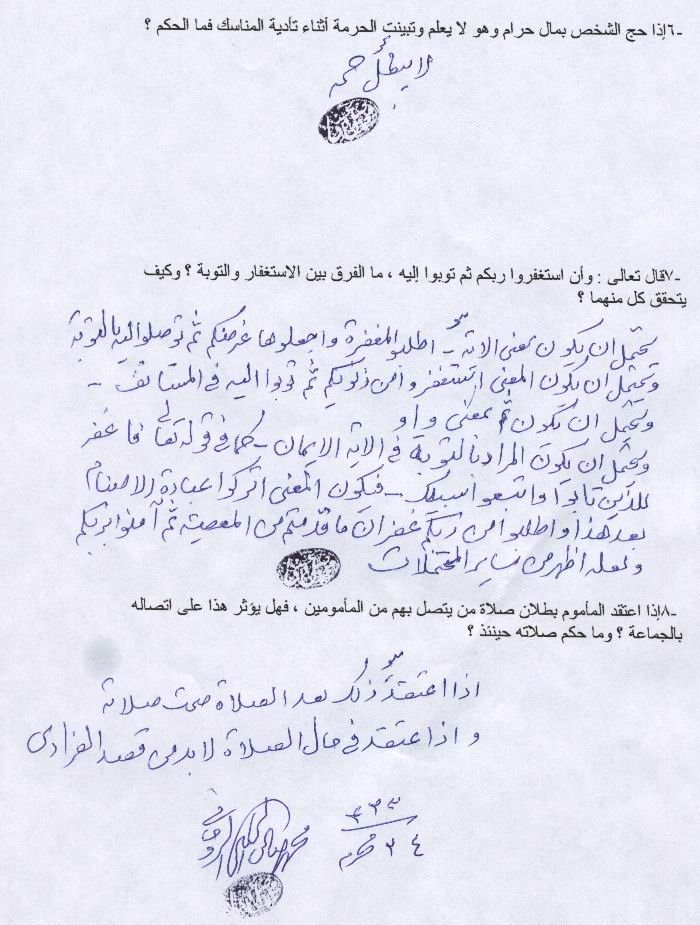 -٦إذا حج الشخص بمال حرام وهو لا يعلم وتبينت الحرمة أثناء تأدية المناسك فما الحكم ؟
لا يبطل حجه
-٧قال تعالى : وأن استغفروا ربكم ثم توبوا إليه ، ما الفرق بين الاستغفار والتوبة ؟ وكيف
يتحقق كل منهما ؟
يحتمل ان يكون معنى الاية - اطلبوا المغفرة واجعلوها غرضكم ثم توصلوا اليه بالتوبة
ويحتمل ان يكون المعنى استغفروا من ذنوبكم ثم توبوا اليه في المستأنف -
ويحتمل ان يكون ثم بمعنى واو
ويحتمل ان يكون المراد بالتوبة في الاية الايمان - كما في قوله تعالى فاغفر
للذين تابوا واتبعوا سبيلك - فيكون المعنى اتركوا عبادة الاصنام
بعد هذا واطلبوا من ربكم غفران ما قدمتم من المعصية ثم آمنوا بربكم
ولعله اظهر من ساير المحتملات
-٨إذا اعتقد المأموم بطلان صلاة من يتصل بهم من المأمومين ، فهل يؤثر هذا على اتصاله
بالجماعة ؟ وما حكم صلاته حينئذ ؟
اذا اعتقد ذلك بعد الصلاة صحت صلاته
و اذا اعتقد في حال الصلاة لا بد من قصد الفرادى
محرم